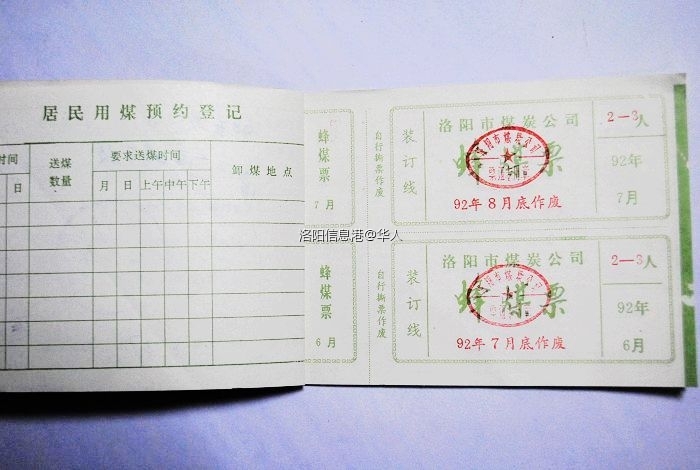 居民用煤预约登记
时间 送煤数量 要求送煤时间 卸煤地点
日 月 日 上午 中午 下午
蜂煤票
7月
自行撕票作废
装订线
洛阳市煤炭公司
蜂煤票
92年8月底作废
2-3人
92年
7月
洛阳信息港@华人
蜂煤票
6月
自行撕票作废
装订线
洛阳市煤炭公司
蜂煤票
92年7月底作废
2-3人
92年
6月